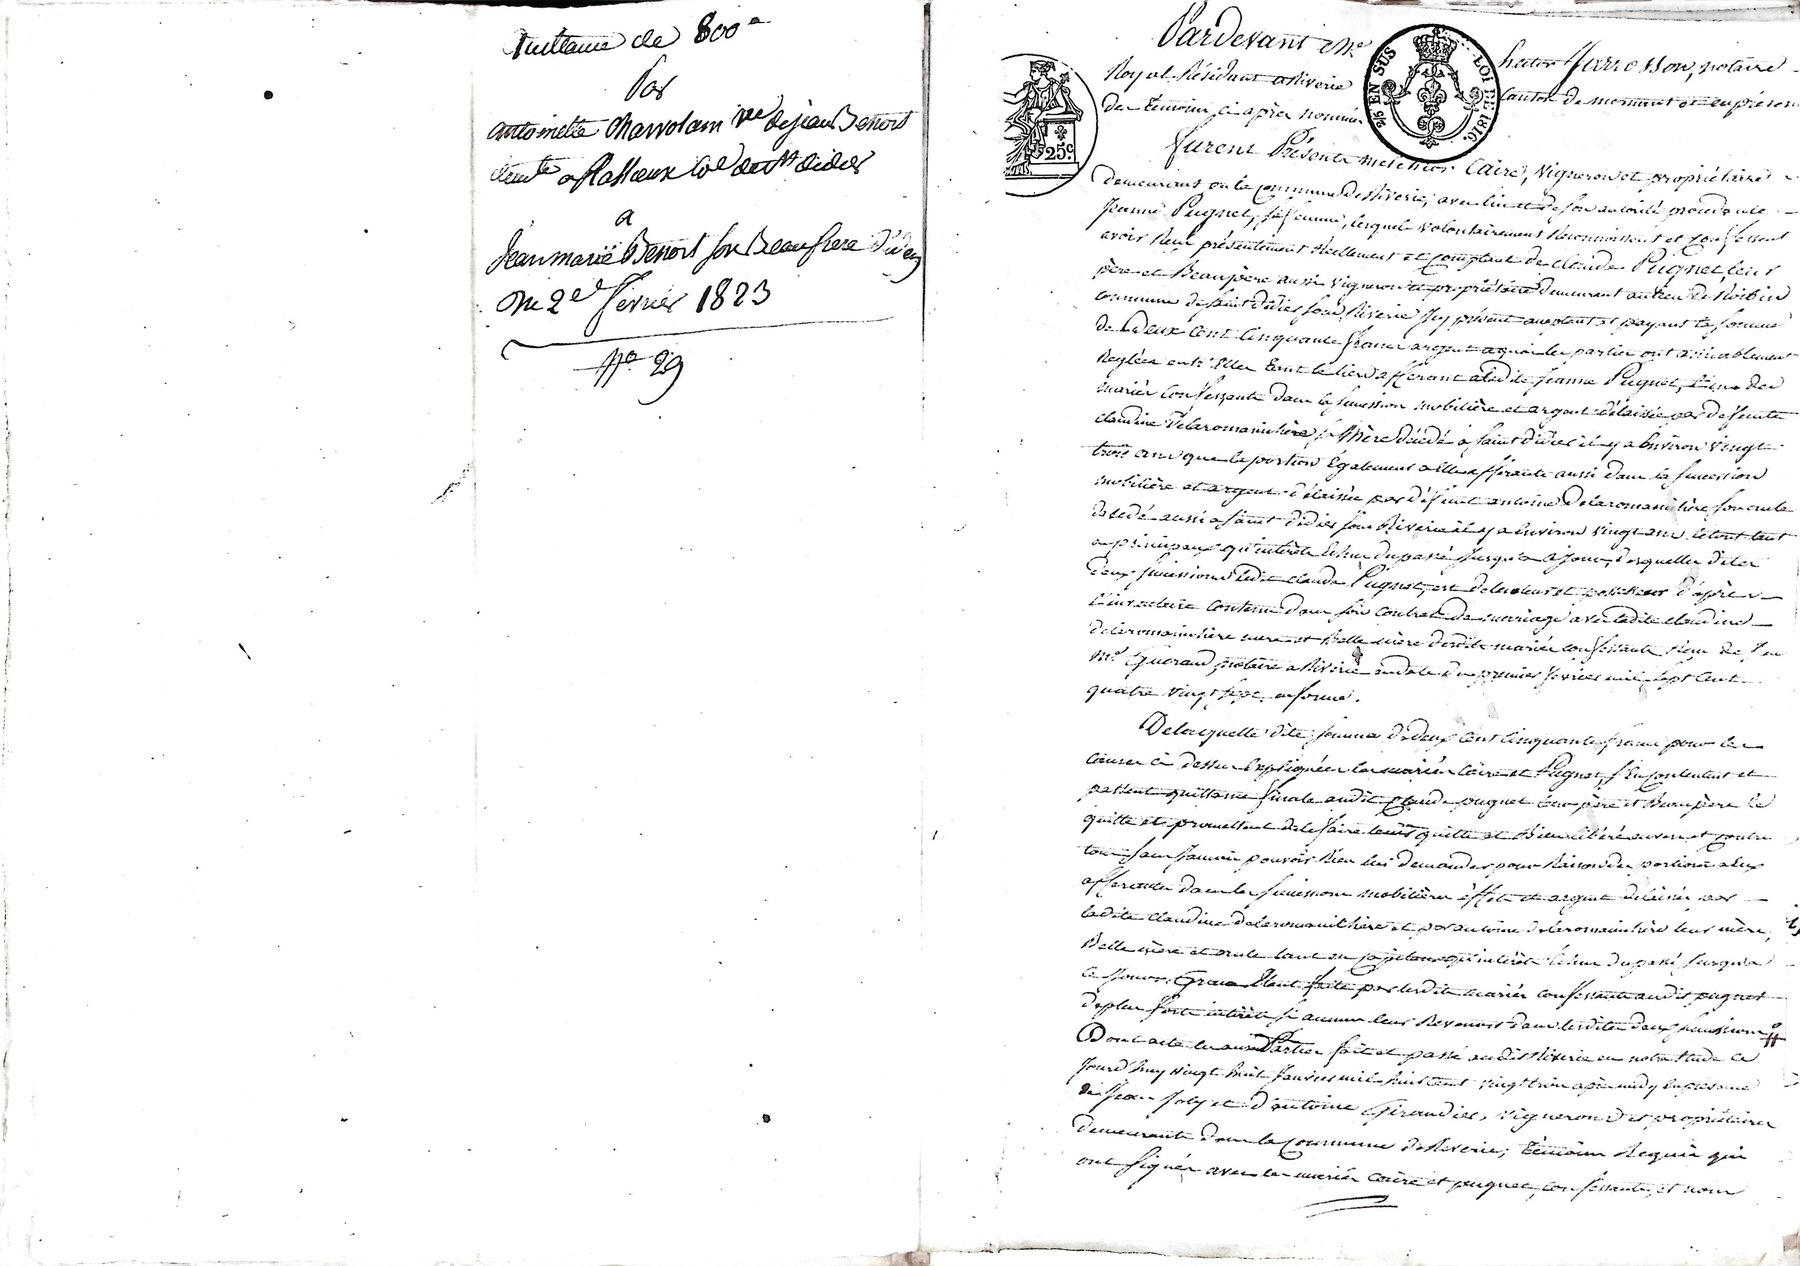 quittance de 800
Par
antoinette charvolain vve de jean Benoit
demte a Plasseux Cne de St didier
a
Jean marie Benoit son Beau frere du dit
Du 2e fevrier 1823
No 29
Pardevant Me hector Jarrosson, notaire
Royal Résidant a Riverie canton de mornant et en présence
des témoins ci après nommés
25c.
2/5 EN SUS LOI DE 1816.
furent Présents melchior Caire, vigneron et propriétaire
demeurant en la commune de Riverie, avec lui et de son autorité procédante
Jeanne Pugnet, sa femme, lesquels volontairement Reconnoissent et confessent
avoir Reçu présentement Réellement et comptant de claude Pugnet leur
père et Beaupère aussi vigneron et propriétaire demeurant au lieu de
commune de saint didier sous Riverie icy présent acceptant et payant la somme
de deux cent cinquante francs argent a quoi les parties ont amiablement
Réglées entr'elles tant le tiers afférant a ladite Jeanne Pugnet, l'une des
mariés confessants dans la succession mobilière et argent délaissée par defunte
claudine delaromanchère, sa Mère décédé a saint didier il y a Environ vingt
trois ans que la portion également a elle afférante aussi dans la succession
mobilière et argent délaissée par défunt antoine Delaromanchère son oncle
décédé aussi a saint didier sous Riverie il y a Environ vingt ans le tout tant
en principaux qu'intérêts échus du passé Jusqu'a ce jour, desquelles dites
deux successions ledit claude Pugnet, est detenteur et possesseur d'après
L'inventaire contenu dans son contrat de mariage avec ladite claudine
delaromanchère mère et Belle mère desdits mariés confessants Reçu de feu
Me Gueraud, notaire a Riverie en date du premier fevrier mil sept cent
quatre vingt sept en forme.
De laquelle dite somme de deux cent cinquante francs pour les
causes ci dessus Expliquées les mariés Caire et Pugnet, s'en contentent et
passent quittance finale audit claude pugnet leur père et Beaupère le
quitte et promettent de le faire tenir quitte et Bien libéré envers et contre
tous sans Jamais pouvoir Rien lui demander pour Raison des portions a eux
afférantes dans les successions mobilières effets et argent délaissées par
ladite claudine delaromanchère et par antoine delaromanchère leur mère,
Belle mère et oncle tant en capitaux qu'intérêts échus du passé Jusqu'a
ce Jour. Grace étant faite par lesdits mariés confessants audit pugnet
de plus forts intérêts si aucuns leurs Revenoit dans lesdites deux successions
Dont acte les aux Parties fait et passé audit Riverie en notre étude ce
Jourd'huy vingt huit Janvier mil huit cent vingt trois après midy en présence
de Jean Joly et d'antoine Giraudier, vignerons et propriétaires
demeurants dans la commune de Riverie, témoins Requis qui
ont signés avec les mariés Caire et pugnet, confessants, et nous